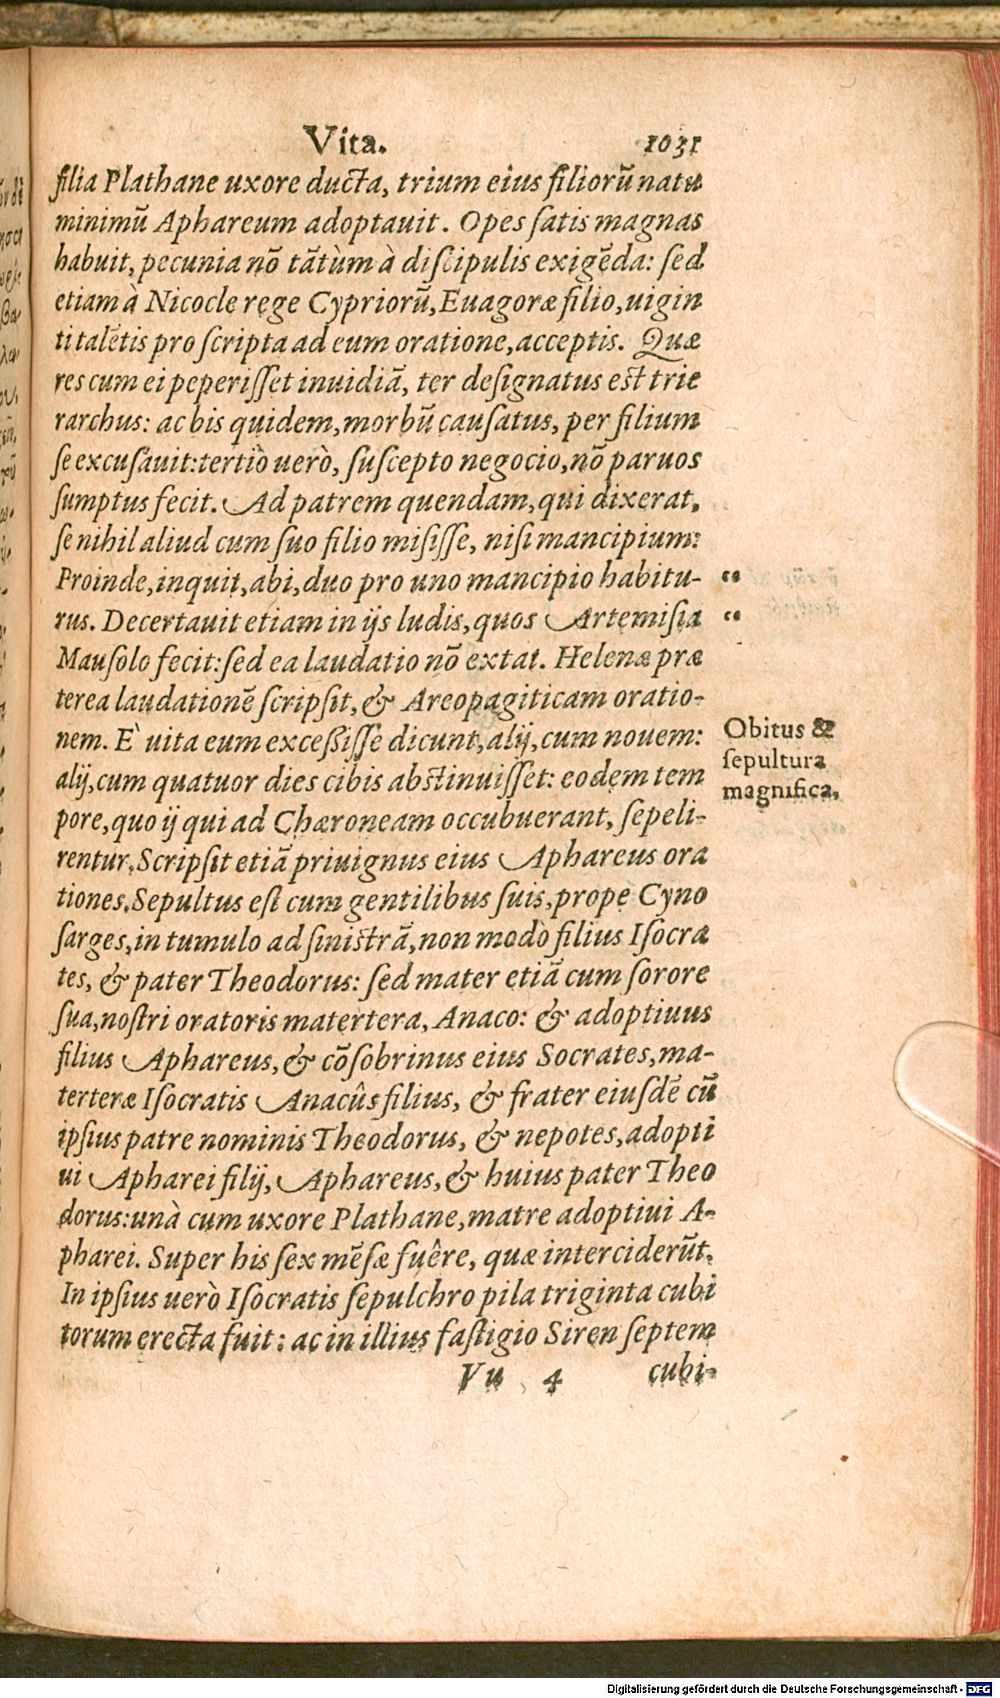 Vita. 1031
filia Plathane uxore ducta, trium eius filiorũ natu
minimũ Aphareum adoptauit. Opes ſatis magnas
habuit, pecunia nõ tãtùm à diſcipulis exigẽda: ſed
etiam à Nicocle rege Cypriorũ, Euagoræ filio, uigin
ti talẽtis pro ſcripta ad eum oratione, acceptis. Quæ
res cum ei peperiſſet inuidiã, ter deſignatus eſt trie
rarchus: ac bis quidem, morbũ cauſatus, per filium
ſe excuſauit: tertiò uerò, ſuſcepto negocio, nõ paruos
ſumptus fecit. Ad patrem quendam, qui dixerat,
ſe nihil aliud cum ſuo filio miſiſſe, niſi mancipium:
Proinde, inquit, abi, duo pro uno mancipio habitu- “
rus. Decertauit etiam in ijs ludis, quos Artemiſia “
Mauſolo fecit: ſed ea laudatio nõ extat. Helenæ præ
terea laudationẽ ſcripſit, & Areopagiticam oratio-
nem. E` uita eum exceßiſſe dicunt, alij, cum nouem:
alij, cum quatuor dies cibis abſtinuiſſet: eodem tem
pore, quo ij qui ad Chæroneam occubuerant, ſepeli-
rentur. Scripſit etiã priuignus eius Aphareus ora
tiones. Sepultus eſt cum gentilibus ſuis, prope Cyno
ſarges, in tumulo ad ſiniſtrã, non modò filius Iſocra
tes, & pater Theodorus: ſed mater etiã cum ſorore
ſua, noſtri oratoris matertera, Anaco: & adoptiuus
filius Aphareus, & cõſobrinus eius Socrates, ma-
terteræ Iſocratis Anacûs filius, & frater eiuſdẽ cũ
ipſius patre nominis Theodorus, & nepotes, adopti
ui Apharei filij, Aphareus, & huius pater Theo
dorus: unà cum uxore Plathane, matre adoptiui A-
pharei. Super his ſex mẽſæ fuêre, quæ interciderũt.
In ipſius uerò Iſocratis ſepulchro pila triginta cubi
torum erecta fuit: ac in illius faſtigio Siren ſeptem
Vu 4 cubi-
Obitus &
ſepultura
magnifica.
Digitalisierung gefördert durch die Deutsche Forschungsgemeinschaft - DFG